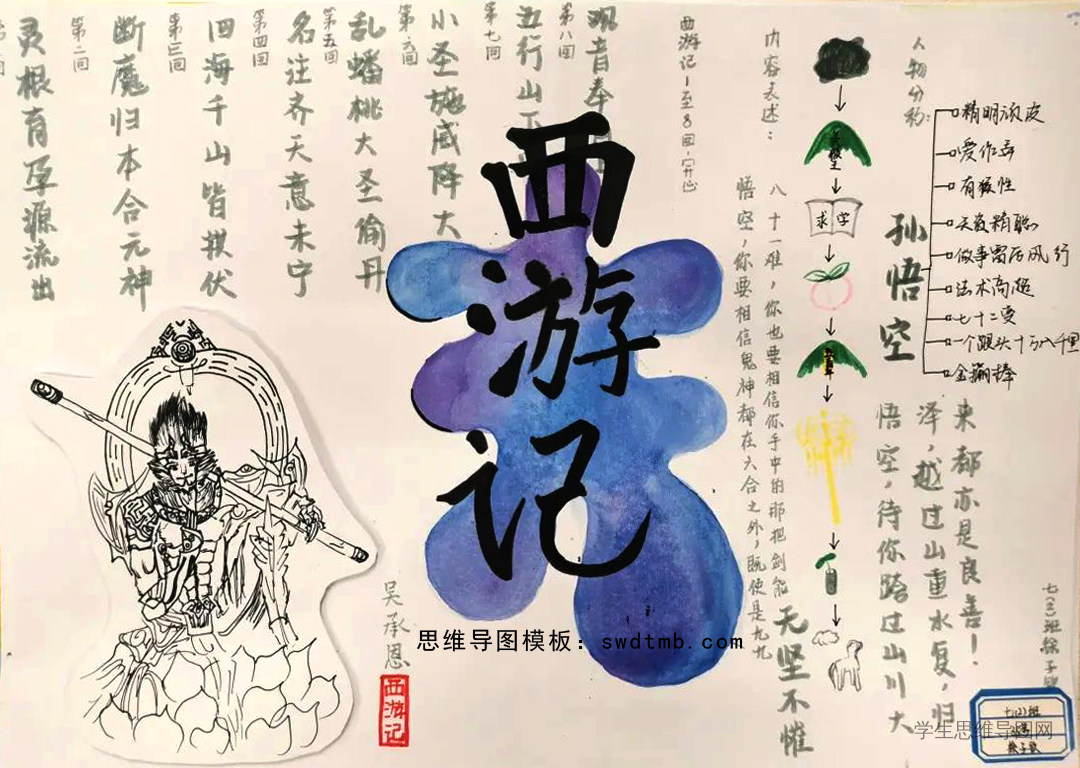 西游记
第二回
第三回
第四回
第五回
第六回
第七回
第八回
灵根育孕源流出
断魔归本合元神
四海千山皆拱伏
名注齐天意未宁
乱蟠桃大圣偷丹
小圣施威降大
五行山下
观音奉
吴承恩
西游记
西游记一至8回
内容表述：
悟空,你要相信鬼神都在六合之外,既使是九九
八十一难,你也要相信你手中的那把剑能
无坚不摧
求学
人物分称:
孙悟空
精明顽皮
爱作弄
有猴性
天资精聪
做事雷厉风行
法术高超
七十二变
一个跟头十万八千里
金箍棒
悟空,待你踏过山川大
泽,越过山重水复,归
来都亦是良善!
思维导图模板：swdtmb.com
学生思维导图网